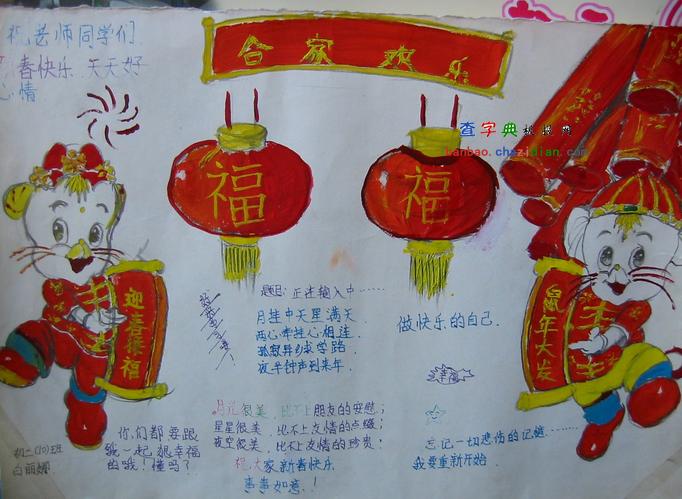 祝老师同学们
春快乐 天天好
心情
合家欢乐
福
福
查字典
anbao.chazidian.com
迎春接福
鼠年大发
题目:正在输入中……
月挂中天星满天
两心牵挂心相连
孤寂异乡求学路
夜半钟声到来年
做快乐的自己.
幸福
月光很美,比不上朋友的安慰;
星星很美,比不上友情的点缀;
夜空很美,比不上友情的珍贵;
祝大家新春快乐
事事如意!
你们都要跟
我一起狠幸福
的哦!懂吗?
初二(10)班
白丽娜
忘记一切悲伤的记忆……
我要重新开始.